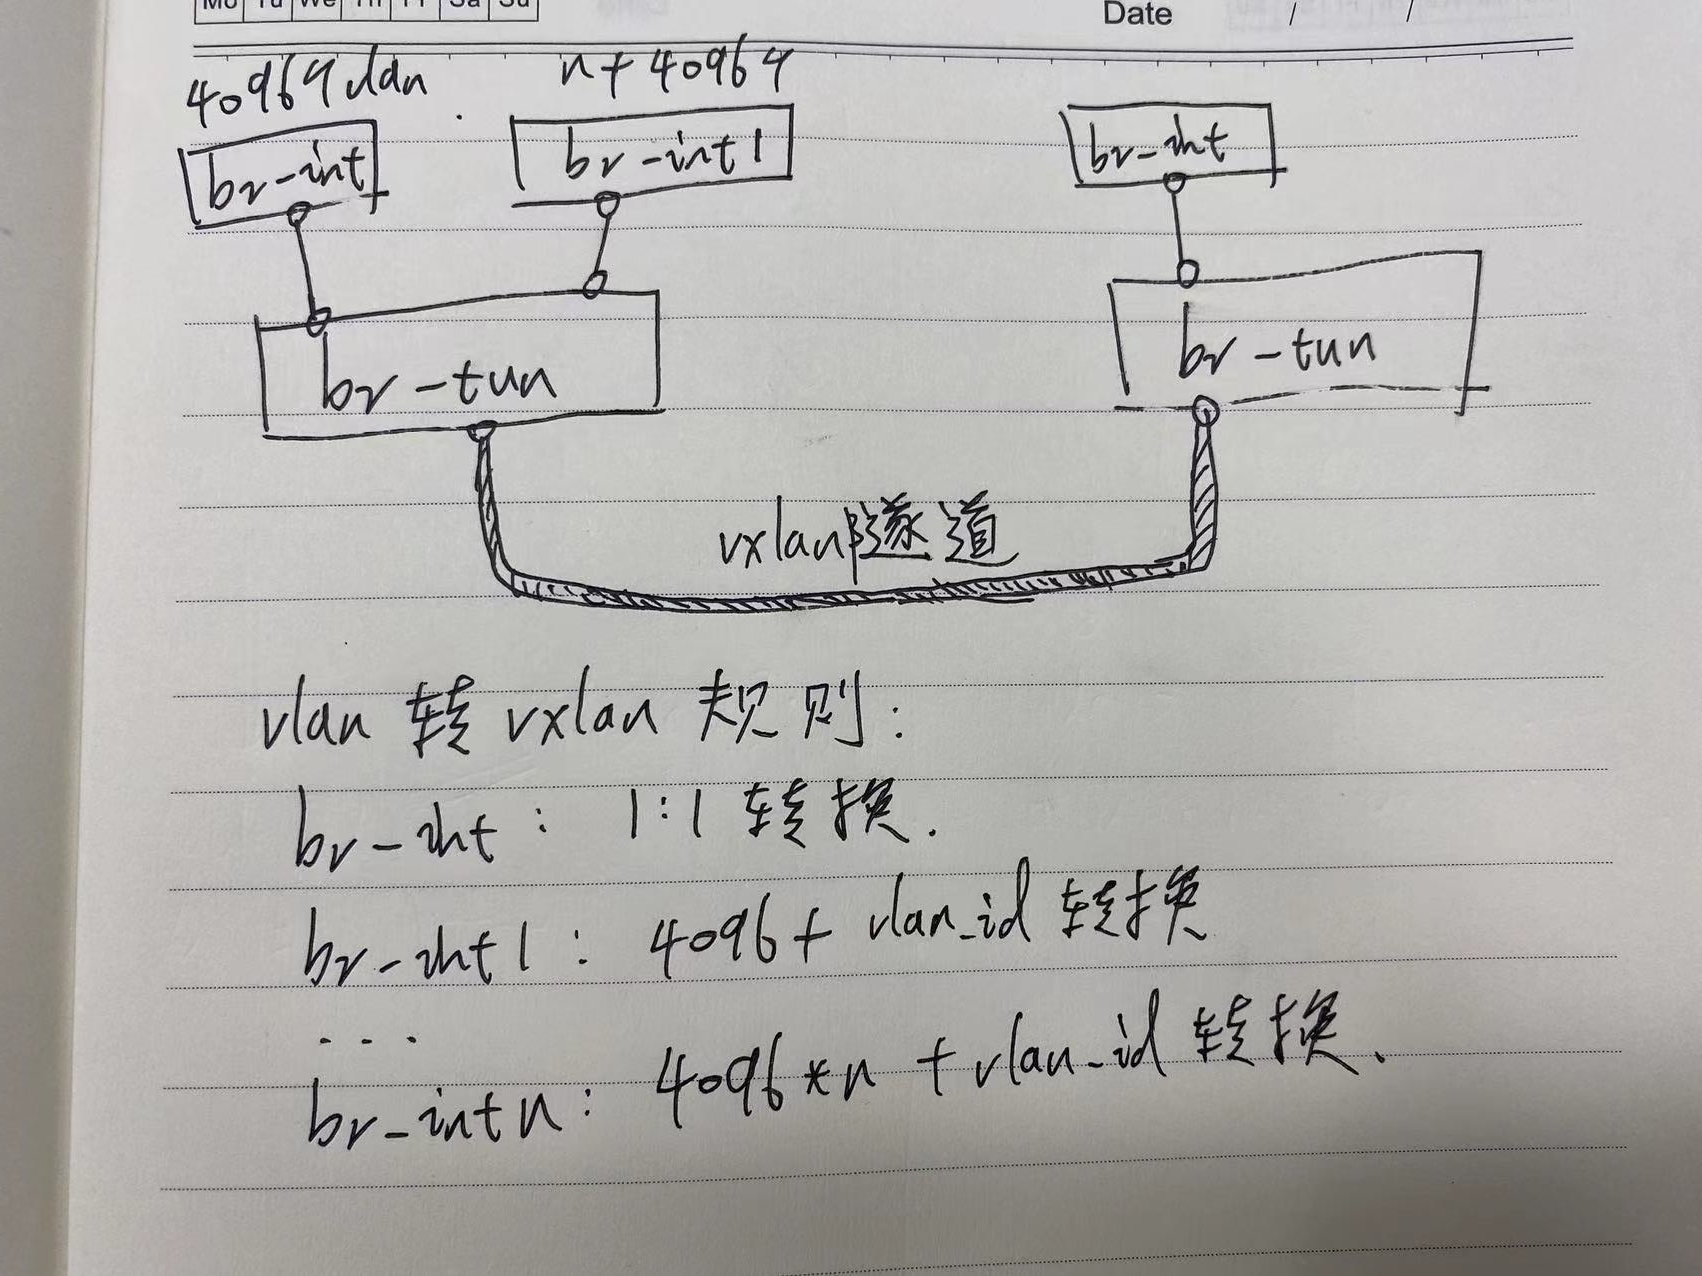 Mo Tu We Th Fr Sa Su
Date / /
4096个vlan
n+4096个
br-int
br-int1
br-int
br-tun
br-tun
vxlan隧道
vlan 转 vxlan 规则:
br-int: 1:1 转换.
br-int1: 4096+ vlan_id 转换
...
br-intn: 4096*n + vlan-id 转换.